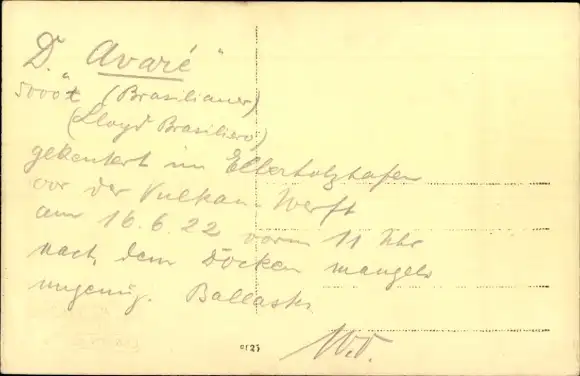 D. "Avaré"
5000 t (Brasilianer)
(Lloyd Brasiliero)
gekentert im Ellerholzhafen
vor der Vulkan-Werft
am 16.6.22 vorm 11 Uhr
nach dem Docken mangels
ungenüg. Ballasts
W.D.